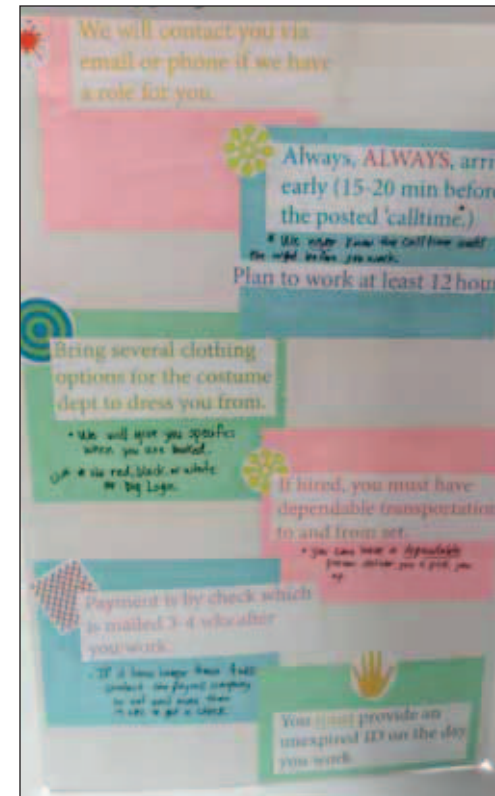 We will contact you via
email or phone if we have
a role for you.
Always, ALWAYS, arri
early (15-20 min before
the posted 'calltime'.)
* We never know the calltime until
the night before you work.
Plan to work at least 12 hour
Bring several clothing
options for the costume
dept to dress you from.
• We will give you specifics
when you are booked.
* No red, black, or white
or Big Logos.
If hired, you must have
dependable transportation
to and from set.
• you can have a dependable
person deliver you & pick you
up.
Payment is by check which
is mailed 3-4 wks after
you work.
• If it takes longer than 4 wks
contact the payroll company
You must provide an
unexpired ID on the day
you work.